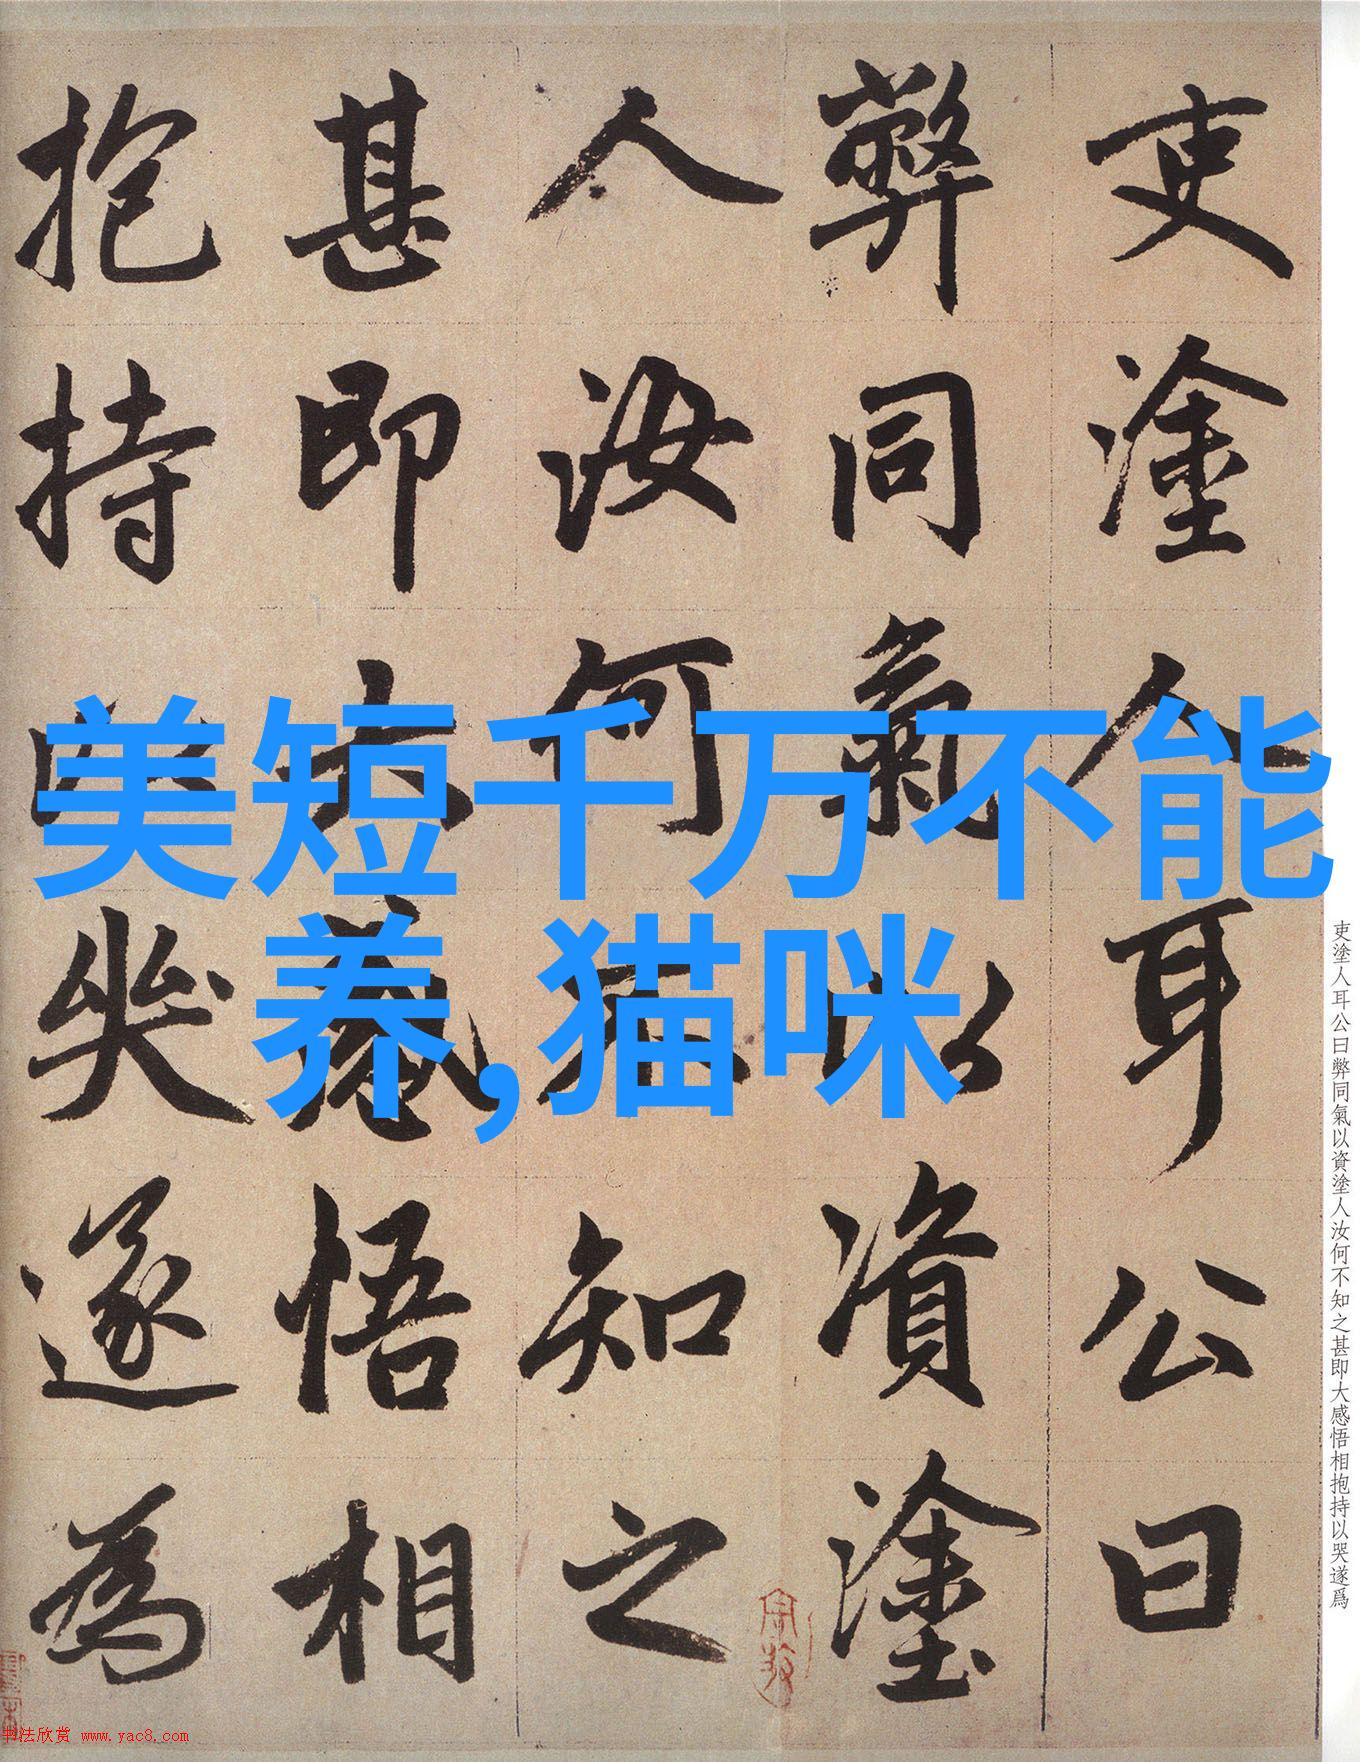 吏塗人耳公曰
弊同氣以資塗
人汝何不知之
甚即大感悟相
抱持以哭遂為
美短千万不能
养,猫咪
吏塗人耳公曰弊同氣以資塗人汝何不知之甚即大感悟相抱持以哭遂爲
书法欣赏 www.yac8.com